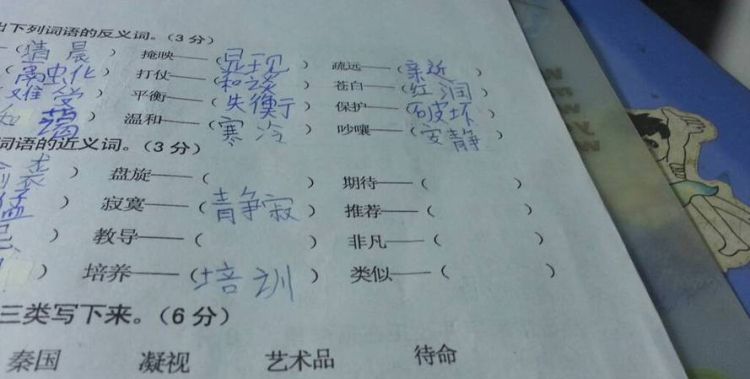 出下列词语的反义词。(3分)
(清晨) 掩映——(显现) 疏远——(亲近)
打仗——(和谈) 苍白——(红润)
难受 平衡——(失衡) 保护——(破坏)
温和——(寒冷) 吵嚷——(安静)
词语的近义词。(3分)
盘旋——( ) 期待——( )
) 寂寞——(青争寂) 推荐——( )
) 教导——( ) 非凡——( )
) 培养——(培训) 类似——( )
三类写下来。(6分)
秦国 凝视 艺术品 待命